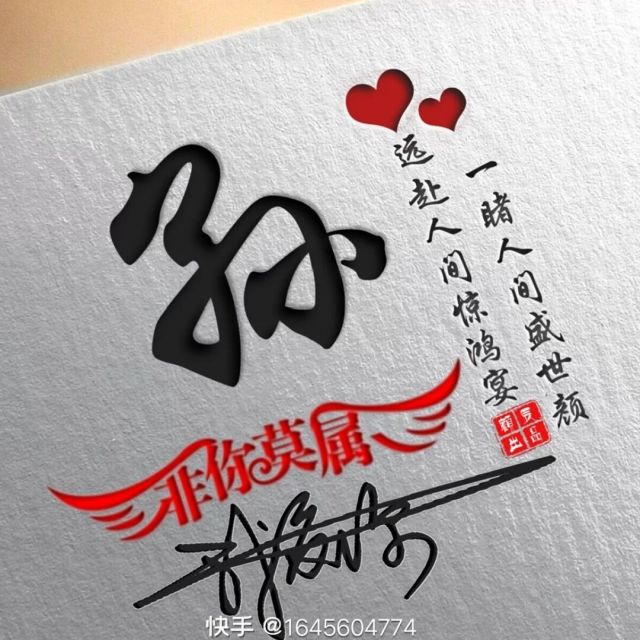 孙
远赴人间惊鸿宴
一睹人间盛世颜
非你莫属
快手 @1645604774